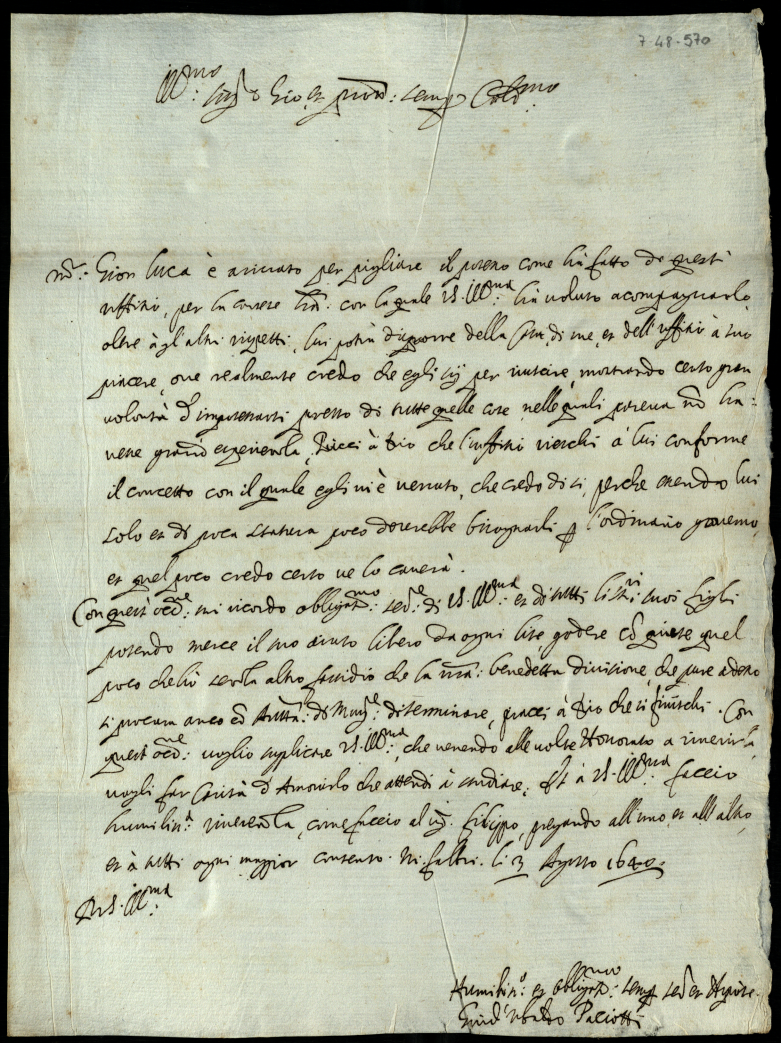 7-48-570
Ill.mo Sig.r Zio, et : semp Col.mo
Gion Luca è arivato per pigliare il come hà fatto de questi
uffitio, per la cortese con la quale VS. Ill.ma hà voluto acompagnarlo
oltre à gl'altri rispetti, lui potrà disporre della Casa di me, et dell'uffitio à suo
piacere, ove realmente credo che egli sij per riuscire, mostrando certo gran
volontà d' presto di tutte quelle cose nelle quali poteva nō ha-
vere grand'esperienza, Piacci à Dio che l'uffitio rieschi à lui conforme
il concetto con il quale egli vi è venuto, che credo di si, perche essendo lui
solo et di poca statura poco doverebbe bisognarli p l'ordinario governo,
et quel poco credo certo ve lo caverà.
Con quest'occ.ne mi ricordo obbligat.mo ser.e di VS. Ill.ma et di tutti li suoi figli
potendo merce il suo aiuto libero da ogni lite godere quel
poco che hò senza altro fastidio che la benedetta divisione, che pure adesso
si procura anco di terminare, piacci à Dio che si finischi. Con
quest'occ.ne voglio supplicare VS. Ill.ma, che venendo alle volte Honorato a riverirla,
vogli far Carità d'Amonirlo che attendi à studiare, Et à VS. Ill.ma faccio
humiliss.a riverenza, come faccio al Sig. Filippo, pregando all'uno, et all'altro,
et à tutti ogni maggior contento. li 3 Agosto 1640.
Di VS. Ill.ma
Humiliss.o et obbligat.mo semp ser. et Nipote
Guid'Ubaldo Paciotti